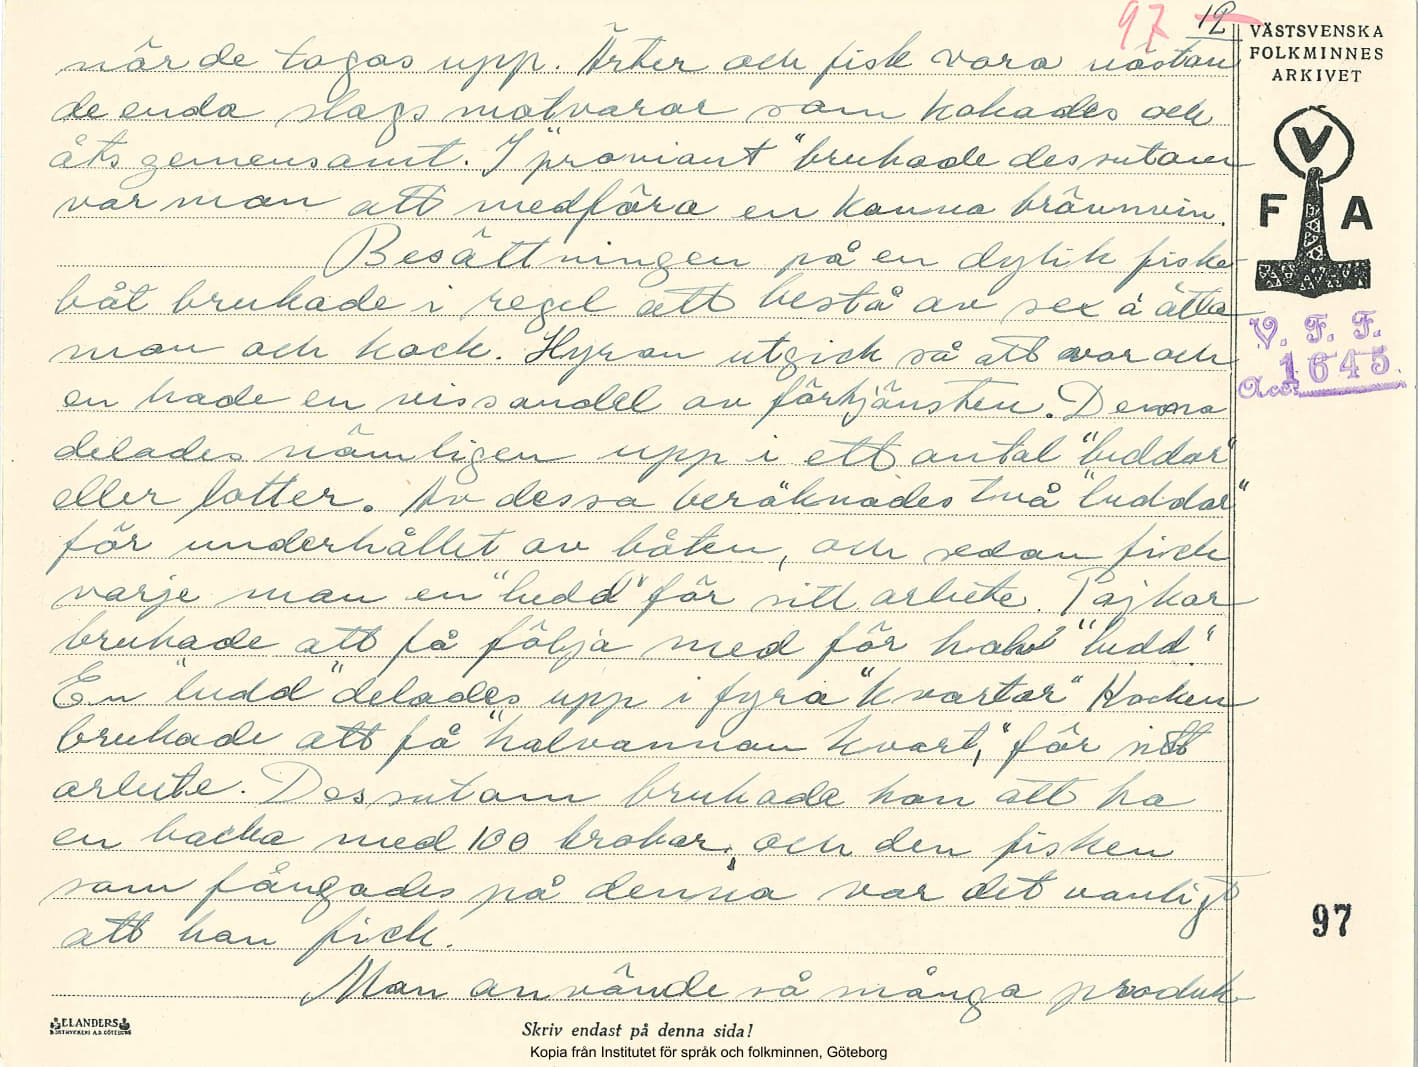 97 12
VÄSTSVENSKA
FOLKMINNES
ARKIVET
V
F A
V. F. F.
Acc. 1645.
när de togos upp. Ärter och fisk voro nästan
de enda slags matvaror som kokades och
åts gemensamt. I "proviant" brukade dessutom
var man att medföra en kanna brännvin.
Besättningen på en dylik fiske
båt brukade i regel att bestå av sex à åtta
man och kock. Hyran utgick så att var och
en hade en viss andel av förtjänsten. Denna
delades nämligen upp i ett antal "luddar"
eller lotter. Av dessa beräknades två "luddar"
för underhållet av båten, och sedan fick
varje man en "ludd" för sitt arbete. Pojkar
brukade att få följa med för halv "ludd".
En "ludd" delades upp i fyra "kvartar" Kocken
brukade att få "halvannan kvart," för sitt
arbete. Dessutom brukade han att ha
en backa med 100 krokar, och den fisken
som fångades på denna var det vanligt
att han fick.
Man använde så många produk
97
ELANDERS
BOKTRYCKERI A.B. GÖTEBORG
Skriv endast på denna sida!
Kopia från Institutet för språk och folkminnen, Göteborg